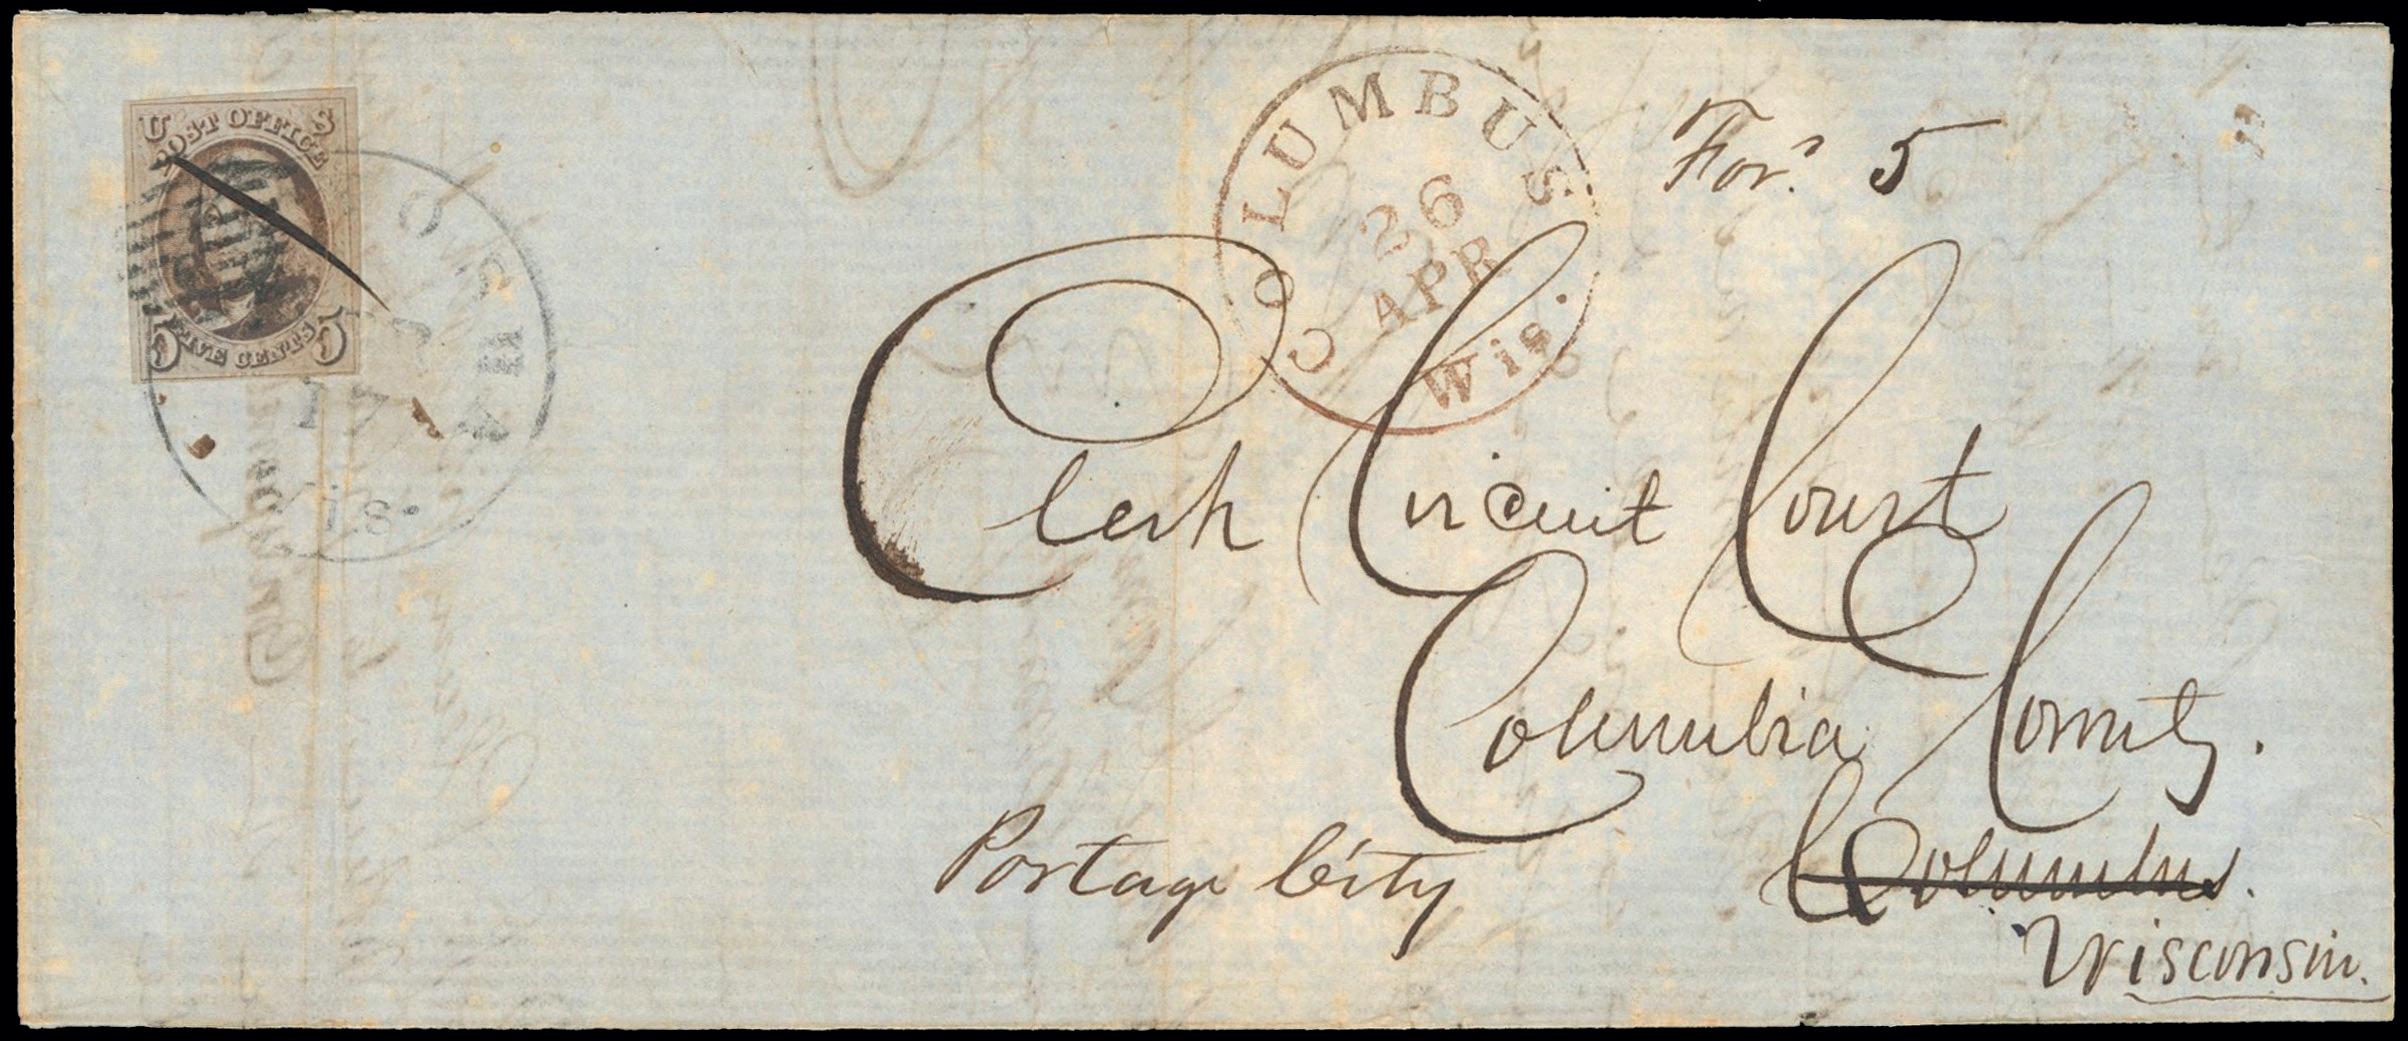 U S
POST OFFICE
5 FIVE CENTS 5
OSHA
17
is.
COLUMBUS
26
APR
Wis.
For.d 5
Clerk Circuit Court
Columbia County.
Portage City
Columbus.
Wisconsin.